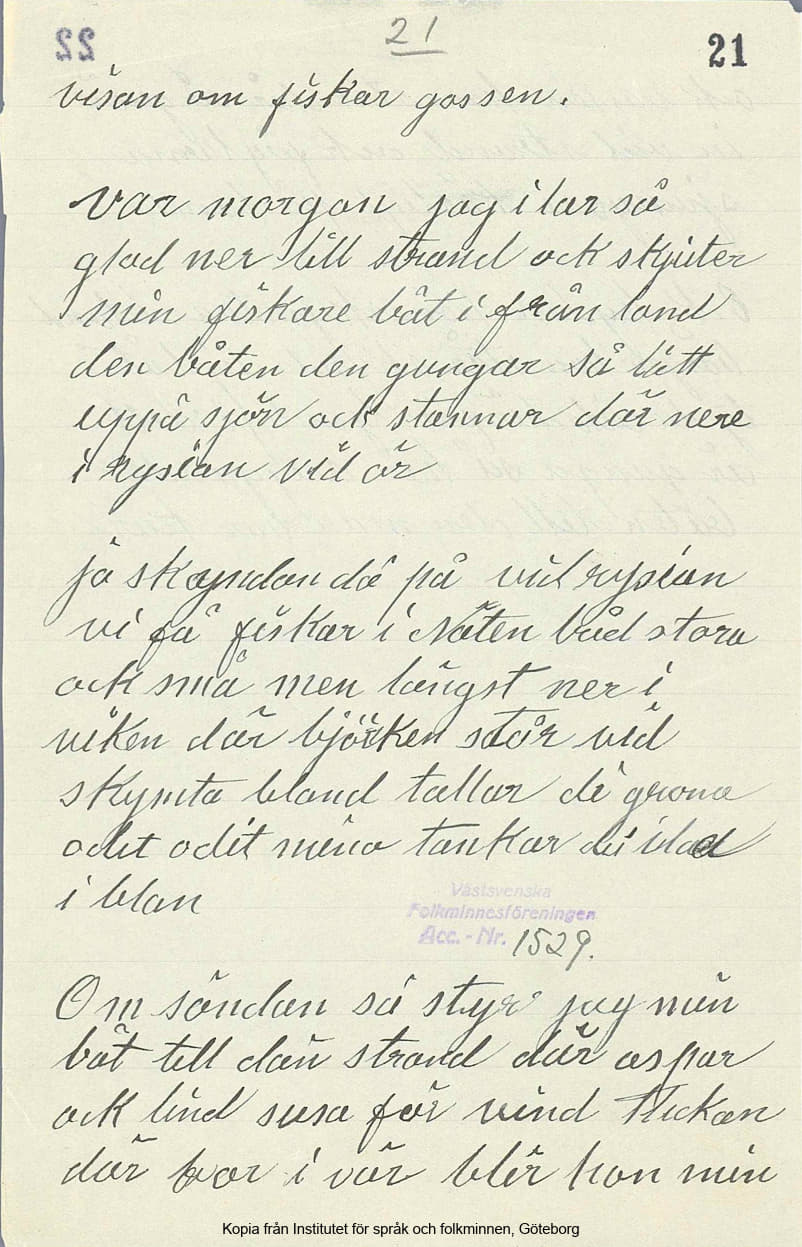 22
21
21
visan om fiskar gossen.
Var morgon jag ilar så
glad ner till strand ock skjuter
min fiskare båt i från land
den båten den gungar så lätt
uppå sjön ock stannar där nere
i rysian vid ör
ja skyndan då på vid rysian
vi få fiskar i Näten båd stora
ock små men längst ner i
viken där björken står vid
skymta bland tallar di grona
odit odit mina tankar di ilad
i blan
Västsvenska
Folkminnesföreningen
Acc. - Nr. 1529.
Om söndan så styr jag min
båt till dän strand där aspar
ock lind susa för vind flickan
där bor i vår blir hon min
Kopia från Institutet för språk och folkminnen, Göteborg